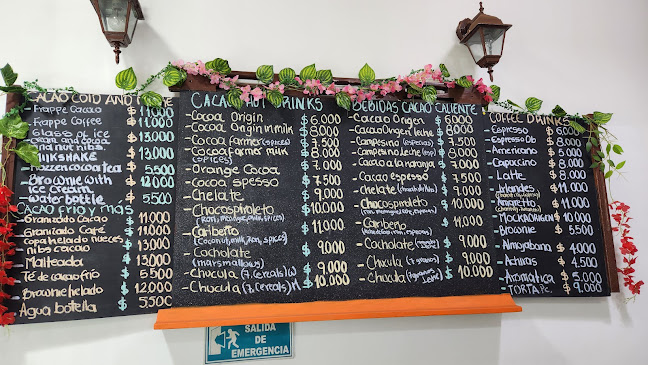 CACAO COLD AND
- Frappe Cacao $ 11.000
- Frappe Coffee $ 11.000
Glass of ice cream and nut nibs $ 13.000
MILKSHAKE $ 13.000
- Hazzen cocoa tea $ 5.500
- Brownie with ice cream $ 12.000
water bottle $ 5.500
CACAO FRIO Y MÁS
Granizado cacao $ 11.000
Granizado Café $ 11.000
Copa helado nueces nibs cacao $ 13.000
Malteada $ 13.000
Té de cacao frío $ 5.500
- Brownie helado $ 12.000
Agua botella $ 5.500
CACAO HOT DRINKS
- Cocoa Origin $ 6.000
- Cocoa Origin in milk $ 8.000
- Cocoa farmer (spices) $ 7.500
- Cocoa farmer milk (spices) $ 8.000
- Orange Cocoa $ 7.500
- Cocoa spesso $ 7.500
- Chelate $ 9.000
- Chocospiroleto $ 10.000
- Caribeño (coconut, milk, ron, spices) $ 10.000
- Cocholate (marsmallows) $ 9.000
- Chucula (7. cereals) W $ 9.000
- Chucula (7. cereals) M $ 10.000
BEBIDAS CACAO CALIENTE
- Cacao Origen $ 6.000
- Cacao Origen leche $ 8.000
- Campesino (especias) $ 7.500
- Campesino leche $ 8.000
- Cacao a la naranja $ 7.500
- Cacao espesso $ 7.500
- Chelate $ 9.000
- Chocospiroleto $ 10.000
- Caribeño $ 10.000
- Cocholate $ 9.000
- Chucula $ 9.000
- Chucula (7 granos) Leche $ 10.000
COFFEE DRINKS
- Espresso $ 5.000
- Espresso Db $ 8.000
- Americano $ 5.000
- Capuccino $ 8.000
- Latte $ 8.000
- Irlandes $ 11.000
- Amaretto $ 11.000
- MOCKAORIGEN $ 10.000
- Brownie $ 5.500
- Almojabana $ 4.000
- Achiras $ 4.500
- Aromatica $ 5.000
- TORTA $ 9.000
SALIDA
DE
EMERGENCIA